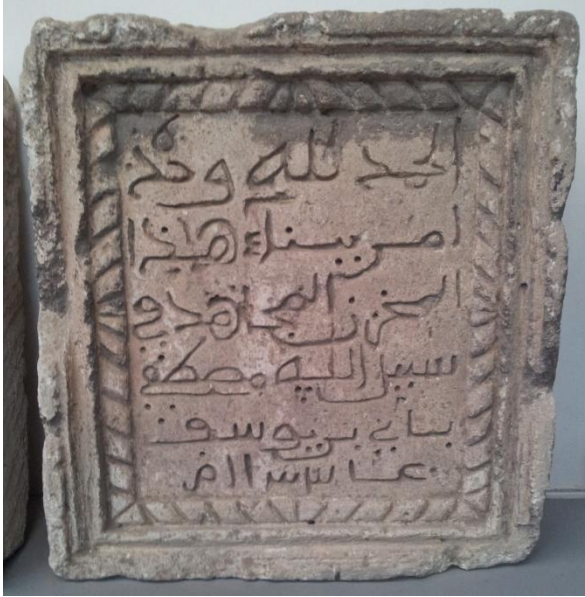 الحمد لله وحده
امر ببناء هاذا
المخزن المجاهد في
سبيل الله مصطفى
بباي بن يوسف